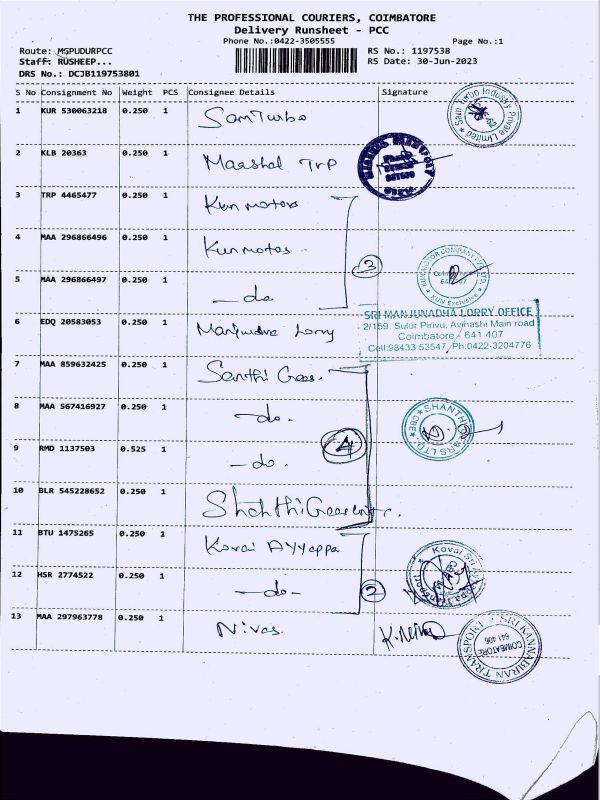 THE PROFESSIONAL COURIERS, COIMBATORE
Delivery Runsheet - PCC
Phone No.:0422-3505555
Page No.:1
Route: MGPUDURPCC
RS No.: 1197538
Staff: RUSHEEP...
RS Date: 30-Jun-2023
DRS No.: DCJB119753801
S No Consignment No Weight PCS Consignee Details Signature
1 KUR 530063218 0.250 1 Sam Turbo
Sam Turbo Industry Private Limited
2 KLB 20363 0.250 1 Maashal Trp
3 TRP 4465477 0.250 1 Kun motors
4 MAA 296866496 0.250 1 Kun motors
3
KUN MOTOR COMPANY PVT. LTD.
KUN Exclusive
5 MAA 296866497 0.250 1 - do
6 EDQ 20583053 0.250 1 Manjunadha Lorry
SRI MANJUNADHA LORRY OFFICE
2/159, Sulur Pirivu, Avinashi Main road
Coimbatore - 641 407
Cell:98433 53547, Ph:0422-3204776
7 MAA 859632425 0.250 1 Santhi Gears.
8 MAA 567416927 0.250 1 - do -
4
SHANTHI GEARS LTD.
CBE
9 RMD 1137503 0.525 1 - do .
10 BLR 545228652 0.250 1 Shahthi Gears
11 BTU 1475265 0.250 1 Kovai Ayyappa
12 HSR 2774522 0.250 1 - do -
2
Kovai
13 MAA 297963778 0.250 1 Nivas
K. Nivas
SRI KANNABIRAN TRANSPORT
COIMBATORE
641 406